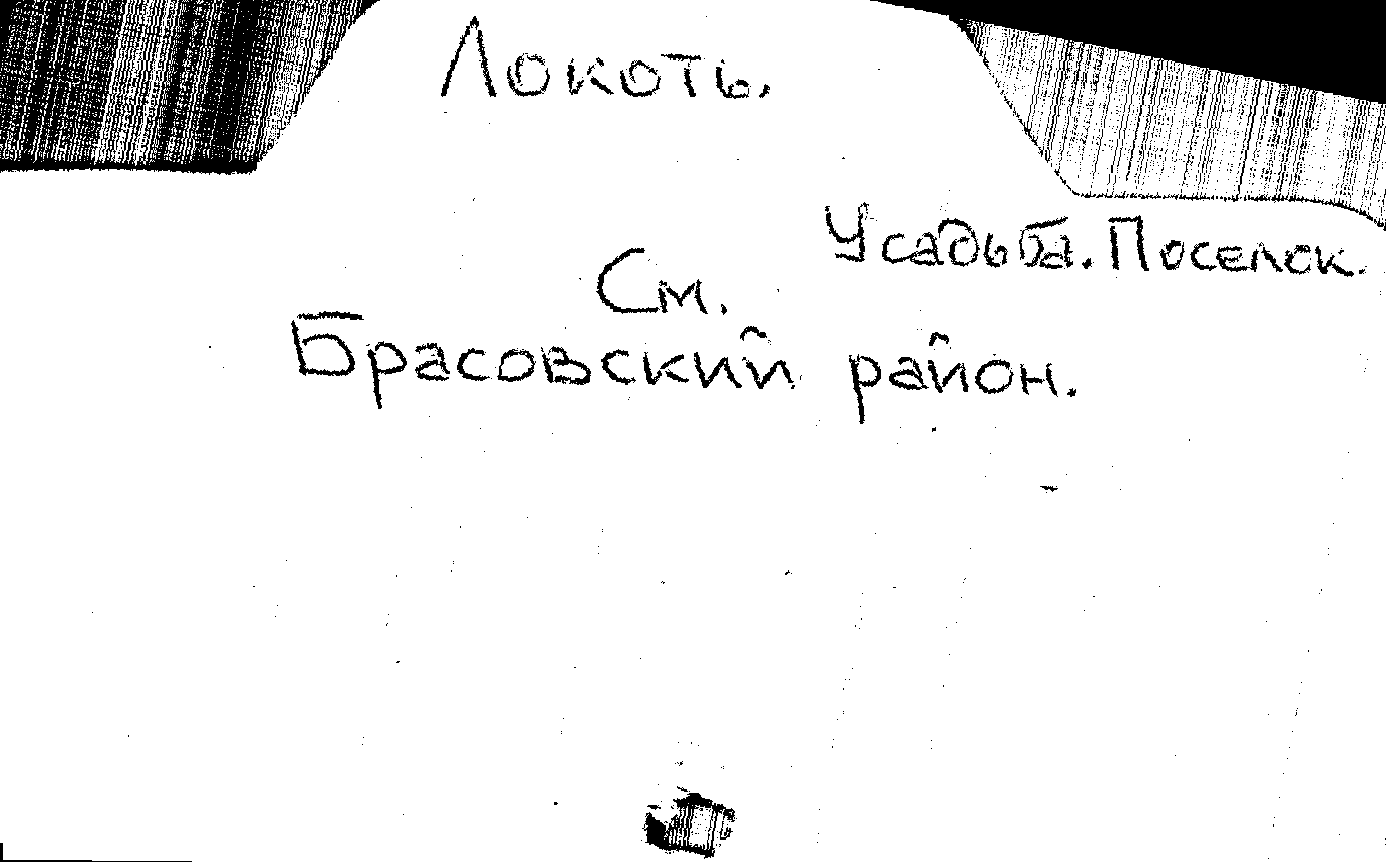 Локоть.
Усадьба. Поселок.
См.
Брасовский район.